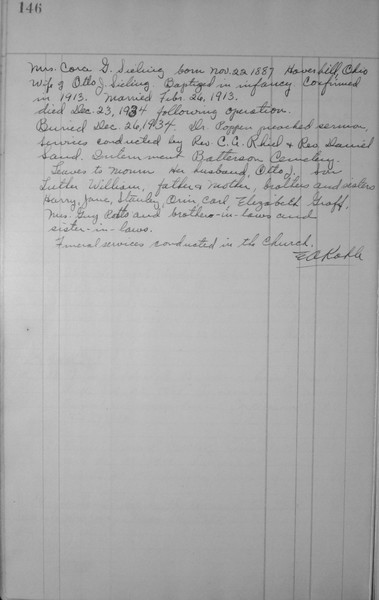 146
Mrs. Cora G. Sieling born Nov. 22 1887 Haverhill, Ohio
Wife of Otto J. Sieling Baptized in infancy Confirmed
in 1913. Married Febr. 26, 1913.
died Dec. 23, 1934 following operation.
Buried Dec. 26, 1934. Dr Poppen preached sermon,
services conducted by Rev. C. G. & Rev Daniel
Sand. Interment Batterson Cemetery.
Leaves to mourn Her husband, Otto J. son
Luther William, father & mother, brothers and sisters
Harry, Jane, Stanley, Orin Carl, Elizabeth Graff,
Mrs. Guy and brothers-in-laws and
sister-in-laws.
Funeral services conducted in the Church.